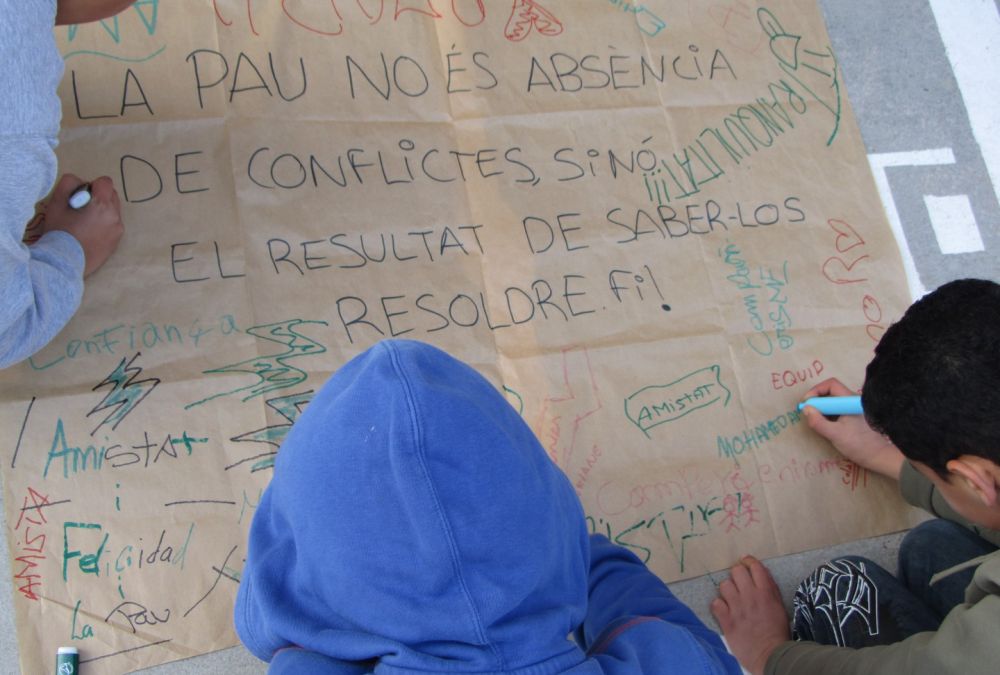 LA PAU NO ÉS ABSÈNCIA
DE CONFLICTES, SINÓ
EL RESULTAT DE SABER-LOS
RESOLDRE. Fi!
TRANQUILITAT!!!
Confiança
Amistat
i
Felicidad
i
La Pau
AMISTA
COMPAÑ
ERISME
EQUIP
AMISTAT
MOHAMED